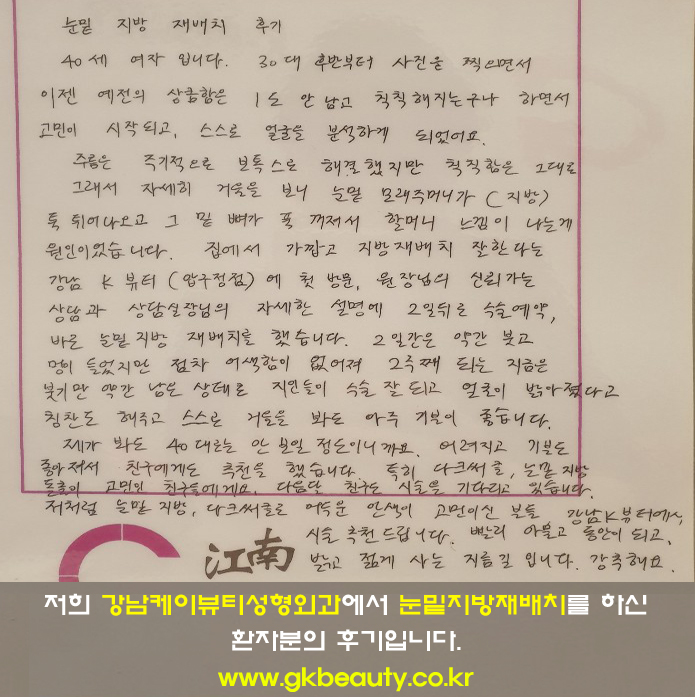 눈밑 지방 재배치 후기
40세 여자 입니다. 30대 후반부터 사진을 찍으면서
이젠 예전의 상큼함은 1도 안남고 칙칙해지는구나 하면서
고민이 시작되고, 스스로 얼굴을 분석하게 되었어요.
주름은 주기적으로 보톡스로 해결했지만 칙칙함은 그대로
그래서 자세히 거울을 보니 눈밑 모래주머니가 (지방)
툭 튀어나오고 그 밑 뼈가 푹 꺼져서 할머니 느낌이 나는게
원인이었습니다. 집에서 가깝고 지방재배치 잘한다는
강남 K 뷰터 (압구정점)에 첫 방문, 원장님의 신뢰가는
상담과 상담실장님의 자세한 설명에 2일뒤로 수술예약,
바로 눈밑지방 재배치를 했습니다. 2일간은 약간 붓고
멍이 들었지만 점차 어색함이 없어져 2주째 되는 지금은
붓기만 약간 남은 상태로 지인들이 수술 잘되고 얼굴이 밝아졌다고
칭찬도 해주고 스스로 거울을 봐도 아주 기분이 좋습니다.
제가 봐도 40대로는 안 보일 정도이니까요. 어려지고 기분도
좋아져서 친구에게도 추천을 했습니다. 특히 다크써클, 눈밑지방
돌출이 고민인 친구들에게요. 다음달 친구도 시술을 기다리고 있습니다.
저처럼 눈밑지방, 다크써클로 어두운 인생이 고민이신 분들 강남K뷰터에서
시술 추천드립니다. 빨리 아물고 동안이 되고,
밝고 젊게 사는 지름길 입니다. 강추해요.
江南
저희 강남케이뷰티성형외과에서 눈밑지방재배치를 하신
환자분의 후기입니다.
www.gkbeauty.co.kr